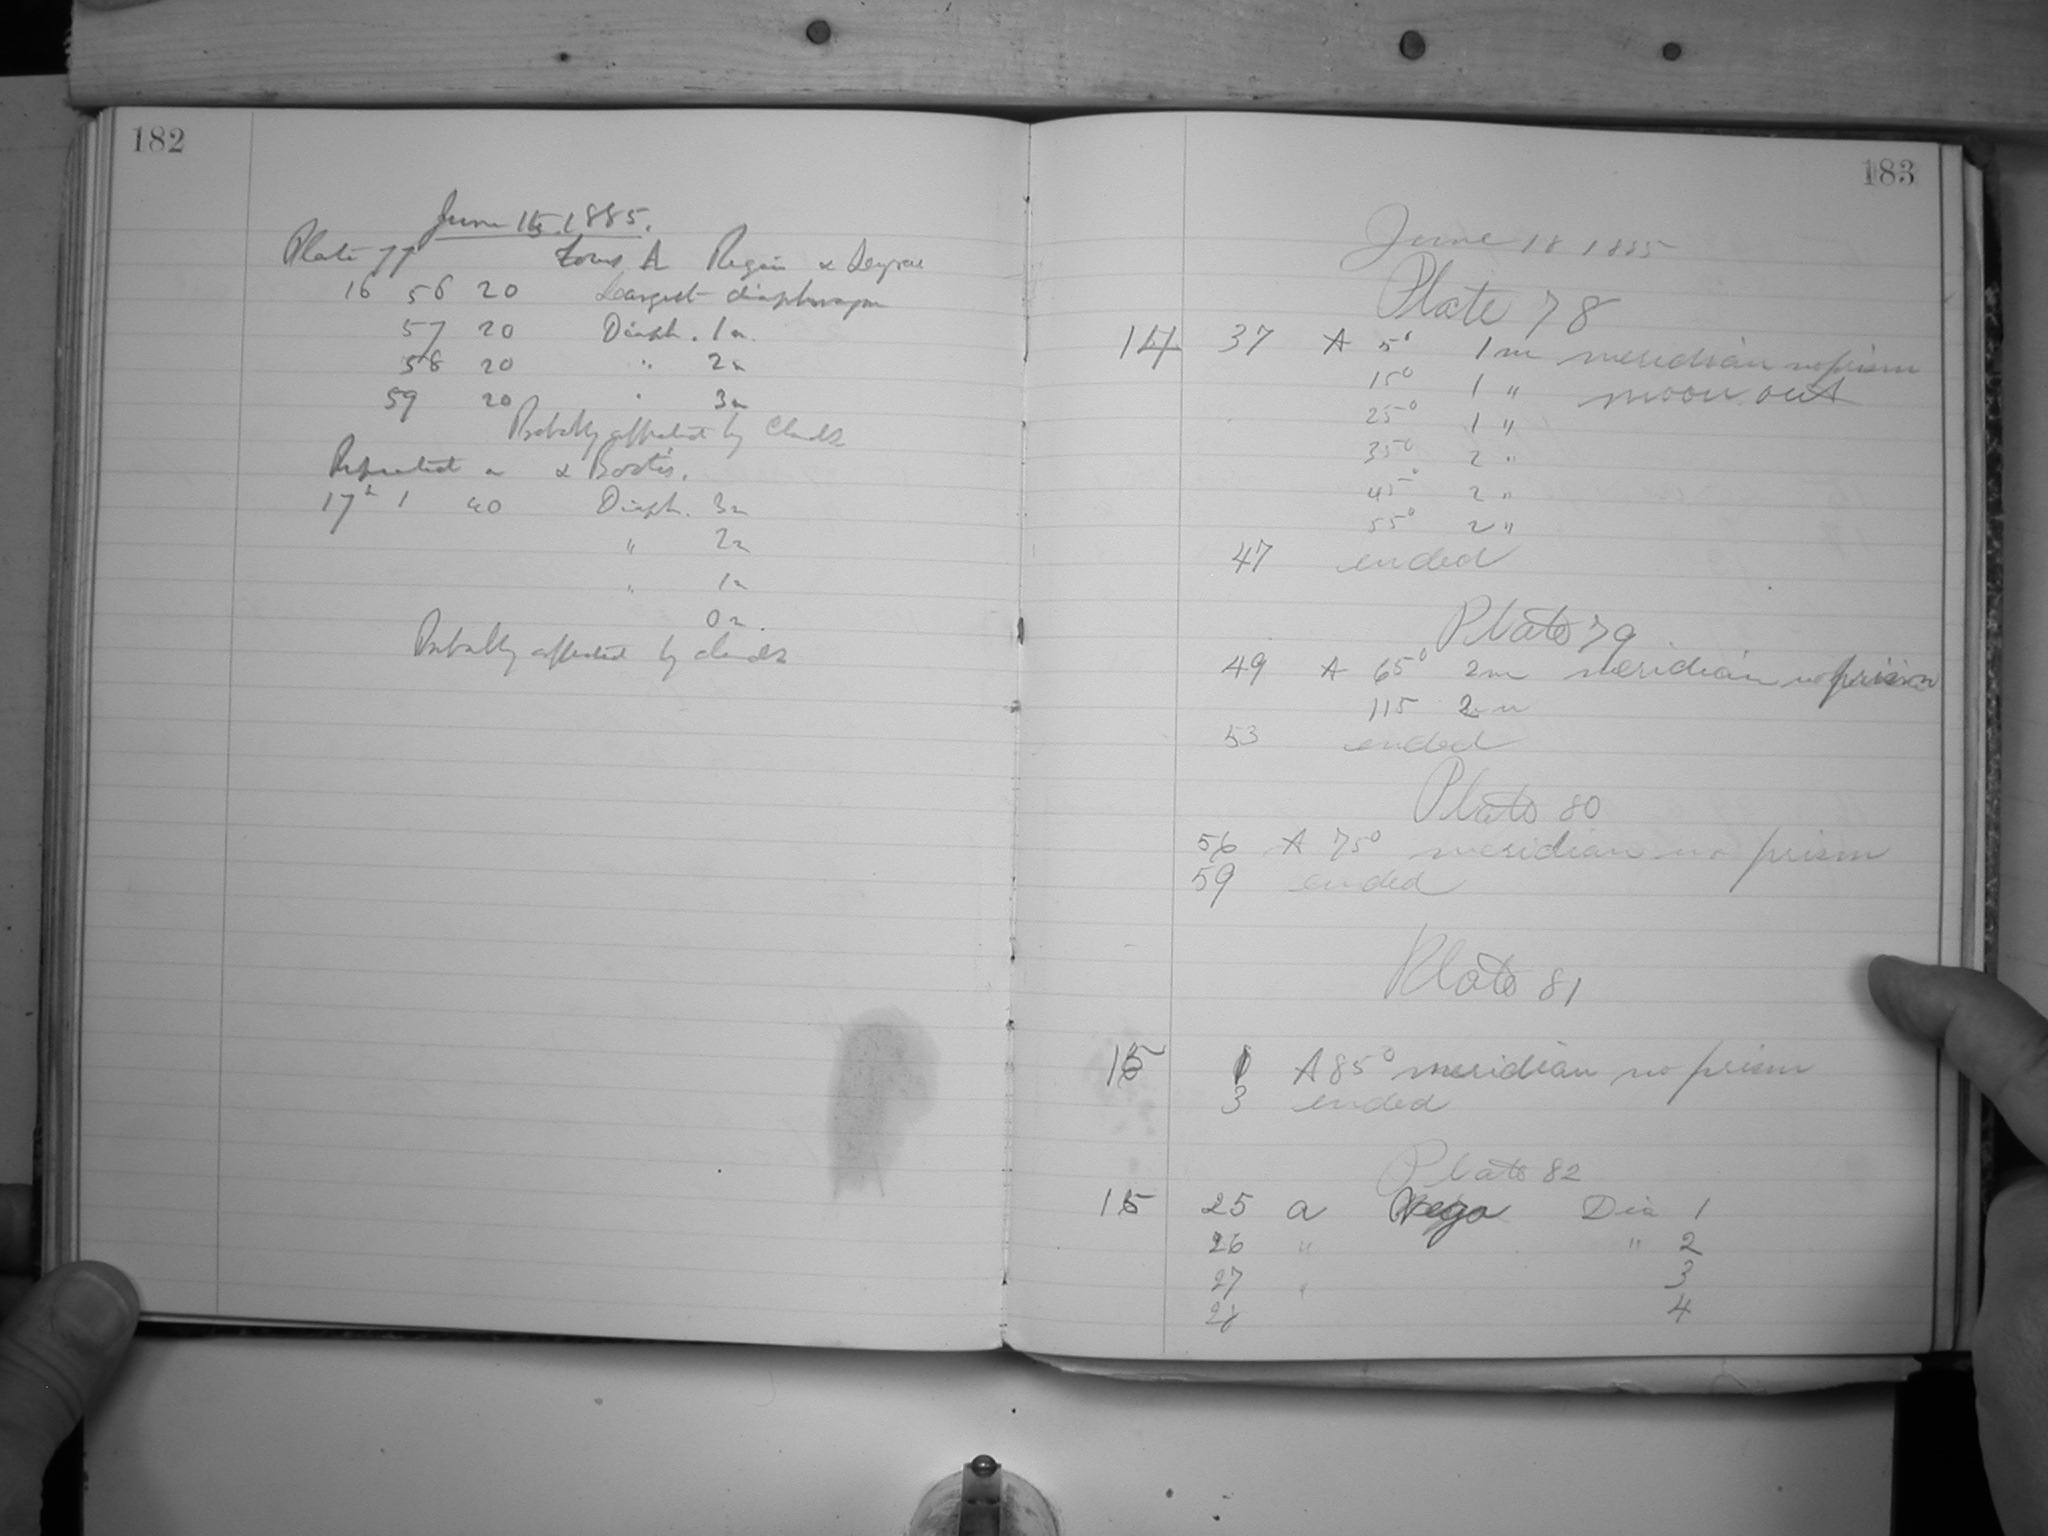 182
June 15. 1885.
Plate 77 Lens A Region α Serpae
16 56 20 Largest diaphragm
57 20 Diaph. 1n.
58 20 " 2n
59 20 " 3n
Probably affected by clouds
Repeated on α Bootis.
17h 1 40 Diaph. 3n
" 2n
" 1n
0n.
Probably affected by clouds
183
June 18 1885
Plate 78
14 37 A 5° 1m meridian no prism
15° 1 " moon out
25° 1 "
35° 2 "
45° 2 "
55° 2 "
47 ended
Plate 79
49 A 65° 2m meridian no prism
115 2 m
53 ended
Plate 80
56 A 75° meridian no prism
59 ended
Plate 81
15 1 A 85° meridian no prism
3 ended
Plate 82
15 25 a Vega Dia 1
26 " " 2
27 " 3
28 4